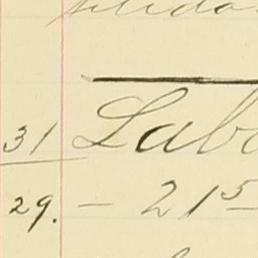 31 Labo
29. - 215